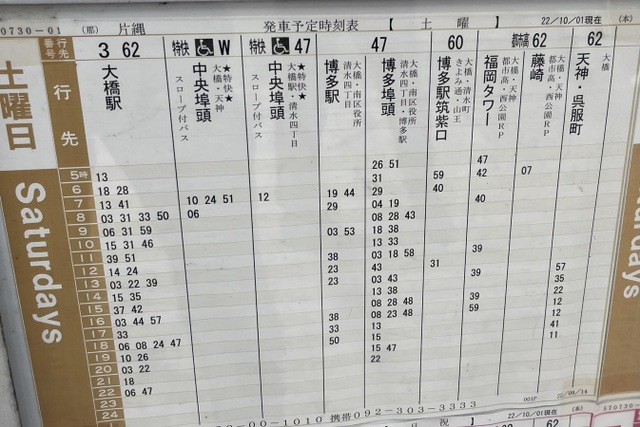 570730-01 (那) 片縄 発車予定時刻表 【 土 曜 】 22/10/01現在 (本)
行先番号 3 62 特快 W 特快 47 47 60 都市高 62 62
土曜日 Saturdays
行先
大橋駅
中央埠頭 ★特快★ 大橋・天神 スロープ付バス
中央埠頭 ★特快★ 大橋駅・清水四丁目 スロープ付バス
博多駅 大橋・南区役所 清水四丁目
博多埠頭 大橋・南区役所 清水四丁目・博多駅
博多駅筑紫口 大橋・清水町 きよみ通・山王
福岡タワー 大橋・天神 都市高・西公園RP
藤崎 大橋・天神 都市高・西公園RP
天神・呉服町 大橋
26 51 47
5時 13 31 59 42 07
6 18 28 19 44 29 40
7 13 41 10 24 51 12 29 04 19 40
8 03 31 33 50 06 08 28 43
9 06 31 59 03 53 18 38
10 15 31 46 13 33
11 39 51 38 03 18 58 39
12 14 24 23 43 31 57
13 03 22 39 23 03 43 35
14 15 35 13 38 39 22
15 37 42 08 28 48 59 12
16 03 44 57 38 08 23 48 12
17 33 33 15 41
18 06 08 24 47 50 15 47 11
19 10 26 22
20 03 22
21 18
22 06 47
23
24
001P 22/09/14
00-1010 携帯092-303-3333
22/10/01現在 (本)
570730-